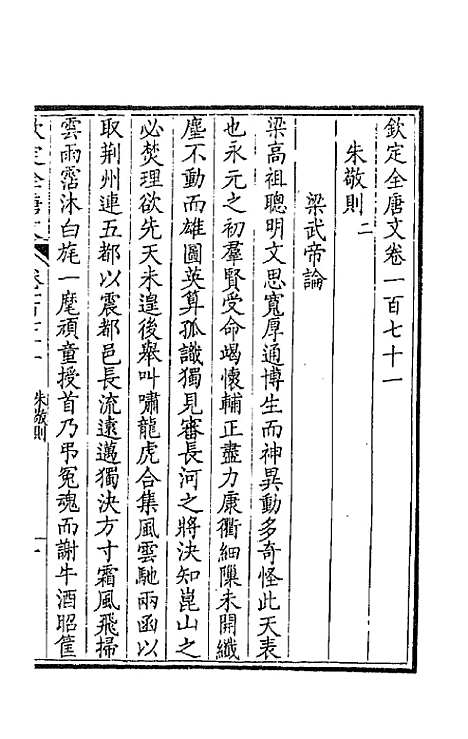 欽定全唐文卷一百七十一
朱敬則二
梁武帝論
梁高祖聰明文思寬厚通博生而神異動多奇怪此天表
也永元之初羣賢受命竭懷輔正盡力康衢細隟未開纖
塵不動而雄圖英算孤識獨見審長河之將決知崑山之
必焚理欲先天未遑後舉叫嘯龍虎合集風雲馳兩函以
取荆州連五都以震都邑長流遠邁獨決方寸霜風飛掃
雲雨霑沐白旄一麾頑童授首乃弔冤魂而謝牛酒昭筐
欽定全唐文 卷一百七十一 朱敬則 一